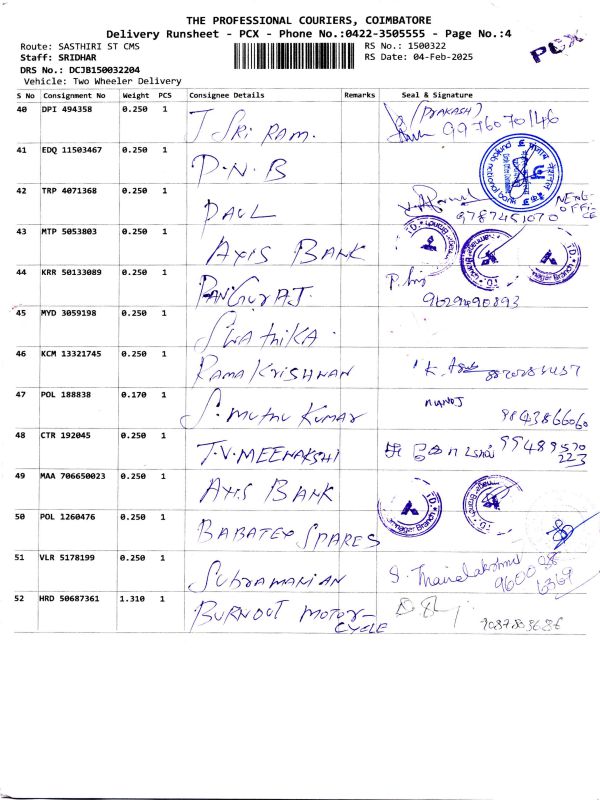 THE PROFESSIONAL COURIERS, COIMBATORE
Delivery Runsheet - PCX - Phone No.:0422-3505555 - Page No.:4
PCX
Route: SASTHIRI ST CMS
RS No.: 1500322
Staff: SRIDHAR
RS Date: 04-Feb-2025
DRS No.: DCJB150032204
Vehicle: Two Wheeler Delivery
S No Consignment No Weight PCS Consignee Details Remarks Seal & Signature
40 DPI 494358 0.250 1 J SRI RAM. (PRAKASH) 9976070146
41 EDQ 11503467 0.250 1 P.N.B
42 TRP 4071368 0.250 1 PAUL 9787451070
43 MTP 5053803 0.250 1 AXIS BANK
44 KRR 50133089 0.250 1 9629490893
45 MYD 3059198 0.250 1 SWATHIKA.
46 KCM 13321745 0.250 1 RAMA KRISHNAN
47 POL 188838 0.170 1 S. MUTHU KUMAR MANOJ 9843866060
48 CTR 192045 0.250 1 T.V. MEENAKSHI
49 MAA 706650023 0.250 1 AXIS BANK
50 POL 1260476 0.250 1 BABATEX SPARES
51 VLR 5178199 0.250 1 SUBRAMANIAN
52 HRD 50687361 1.310 1 BURNOUT MOTOR-
CYCLE